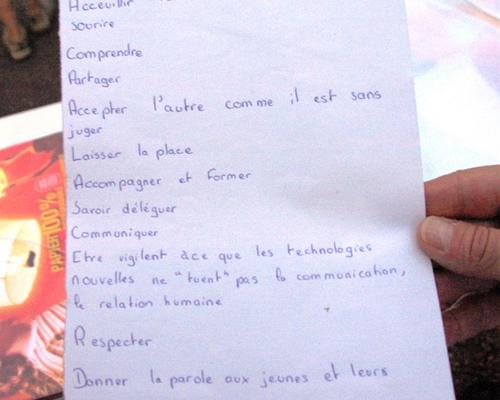 Acceuillir
sourire
Comprendre
Partager
Accepter l'autre comme il est sans
juger
Laisser la place
Accompagner et Former
Savoir déléguer
Communiquer
Etre vigilent àce que les technologies
nouvelles ne "tuent" pas la communication,
la relation humaine
Respecter
Donner la parole aux jeunes et leurs
PAPIER 100%